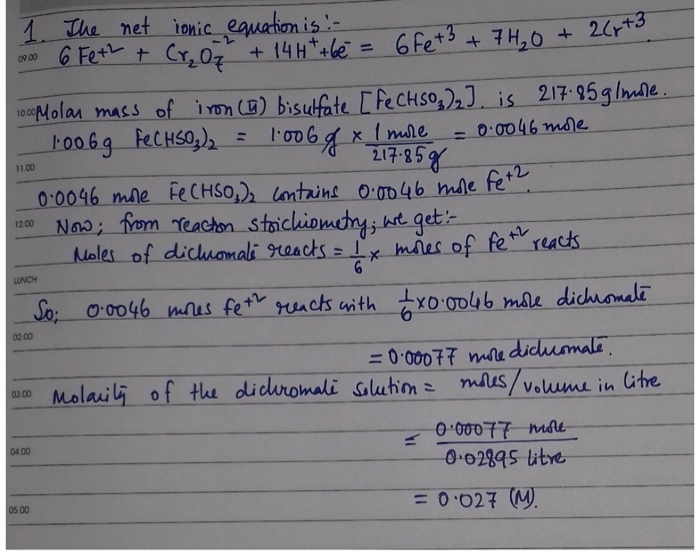 1. The net ionic equation is:-
09.00 6 Fe⁺² + Cr₂O₇⁻² + 14H⁺ + 6e⁻ = 6Fe⁺³ + 7H₂O + 2Cr⁺³
10.00 Molar mass of iron (II) bisulfate [Fe(HSO₃)₂]. is 217.85g/mole.
1.006g Fe(HSO₃)₂ = 1.006 g × 1 mole / 217.85g = 0.0046 mole
11.00
0.0046 mole Fe(HSO₃)₂ contains 0.0046 mole Fe⁺².
12.00 Now; from reacton stoichiometry; we get:-
Moles of dichromate reacts = 1/6 × moles of Fe⁺² reacts
LUNCH
So; 0.0046 moles Fe⁺² reacts with 1/6 × 0.0046 mole dichromate
02.00
= 0.00077 mole dichromate.
03.00 Molarity of the dichromate solution = moles/volume in litre
= 0.00077 mole / 0.02895 litre
04.00
= 0.027 (M).
05.00